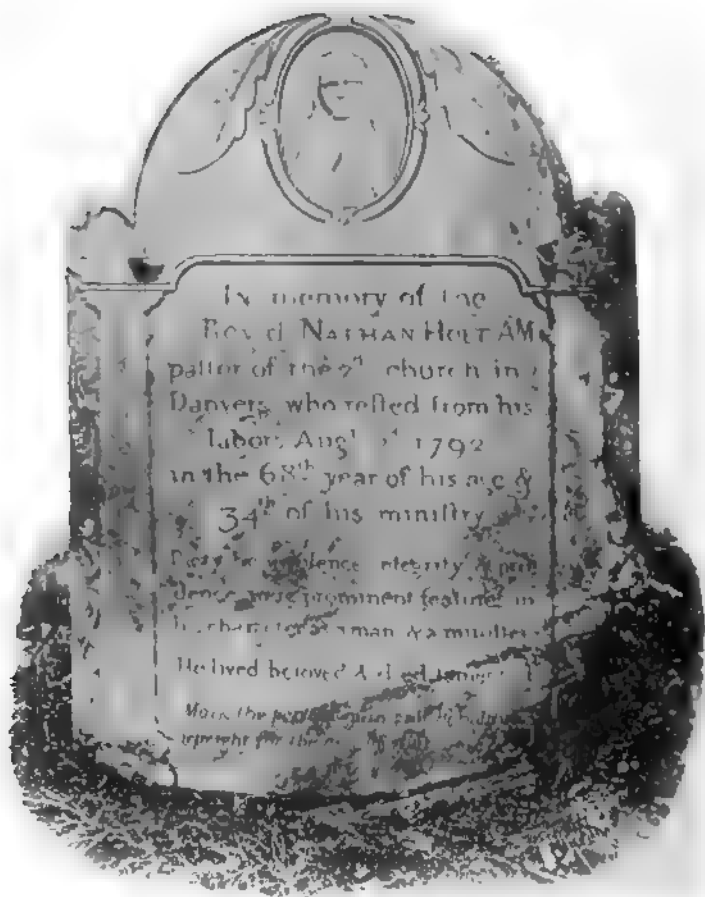 In memory of the
Revd. NATHAN HOLT AM
paſtor of the 2d church in
Danvers, who reſted from his
labors Augſt 1792
in the 68th year of his age &
34th of his miniſtry
integrity &
dence, were prominent features in
his character as a man & a miniſter
He lived beloved & died lamented
Mark the perfect man
upright for the